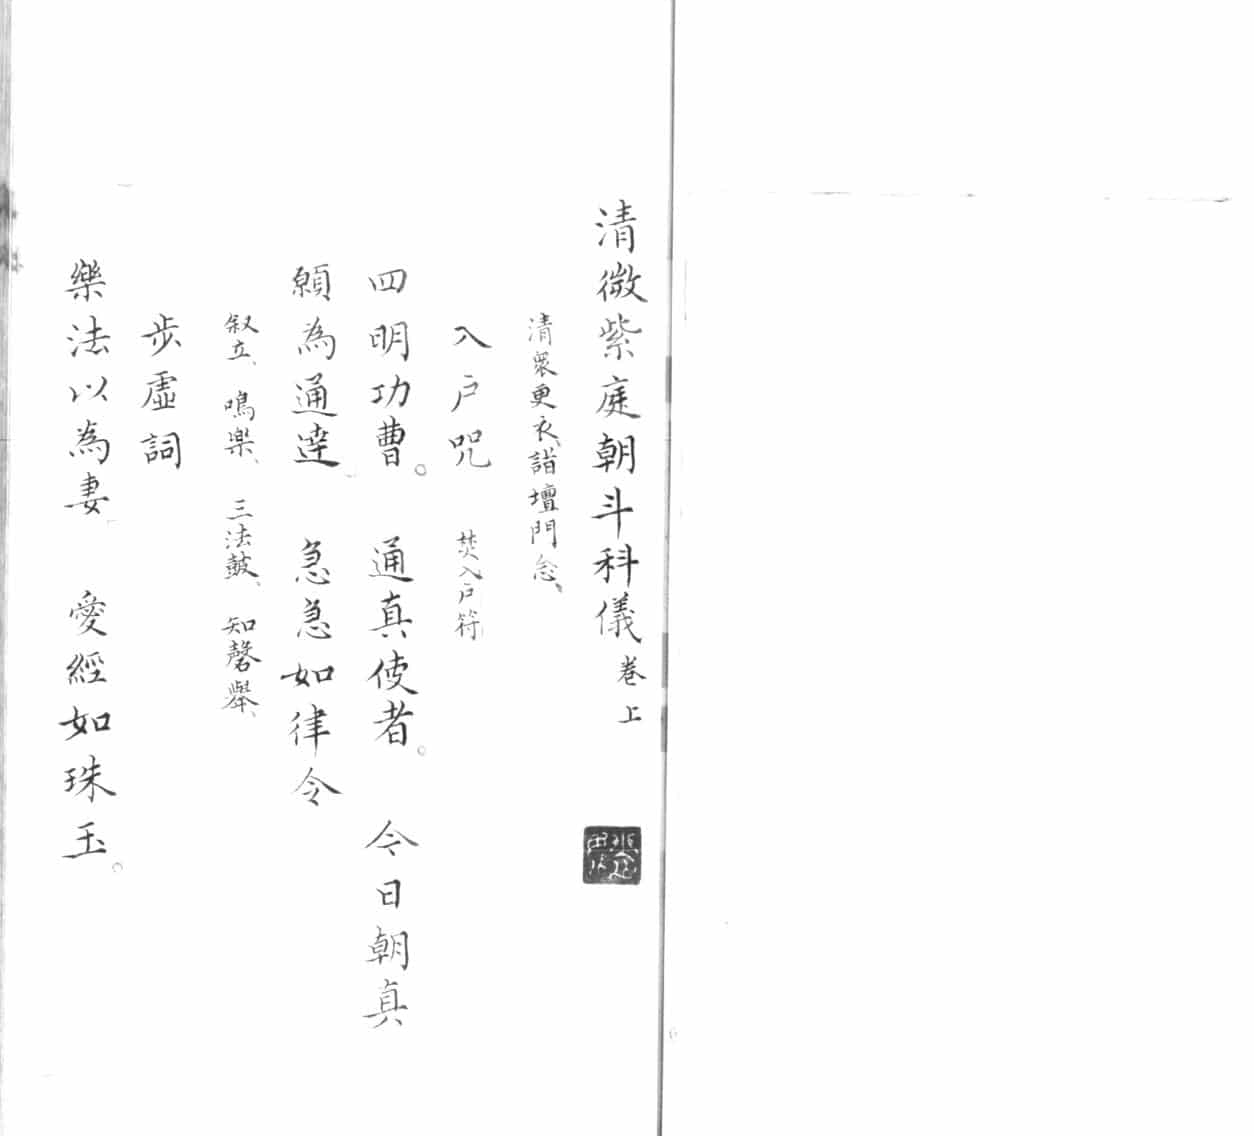 清微紫庭朝斗科儀 卷上
清眾更衣、詣壇門念、
入戶咒 焚入戶符
四明功曹。 通真使者。 今日朝真
願為通達 急急如律令
叙立、鳴楽、三法鼓、知磬舉、
步虛詞
樂法以為妻 愛經如珠玉。